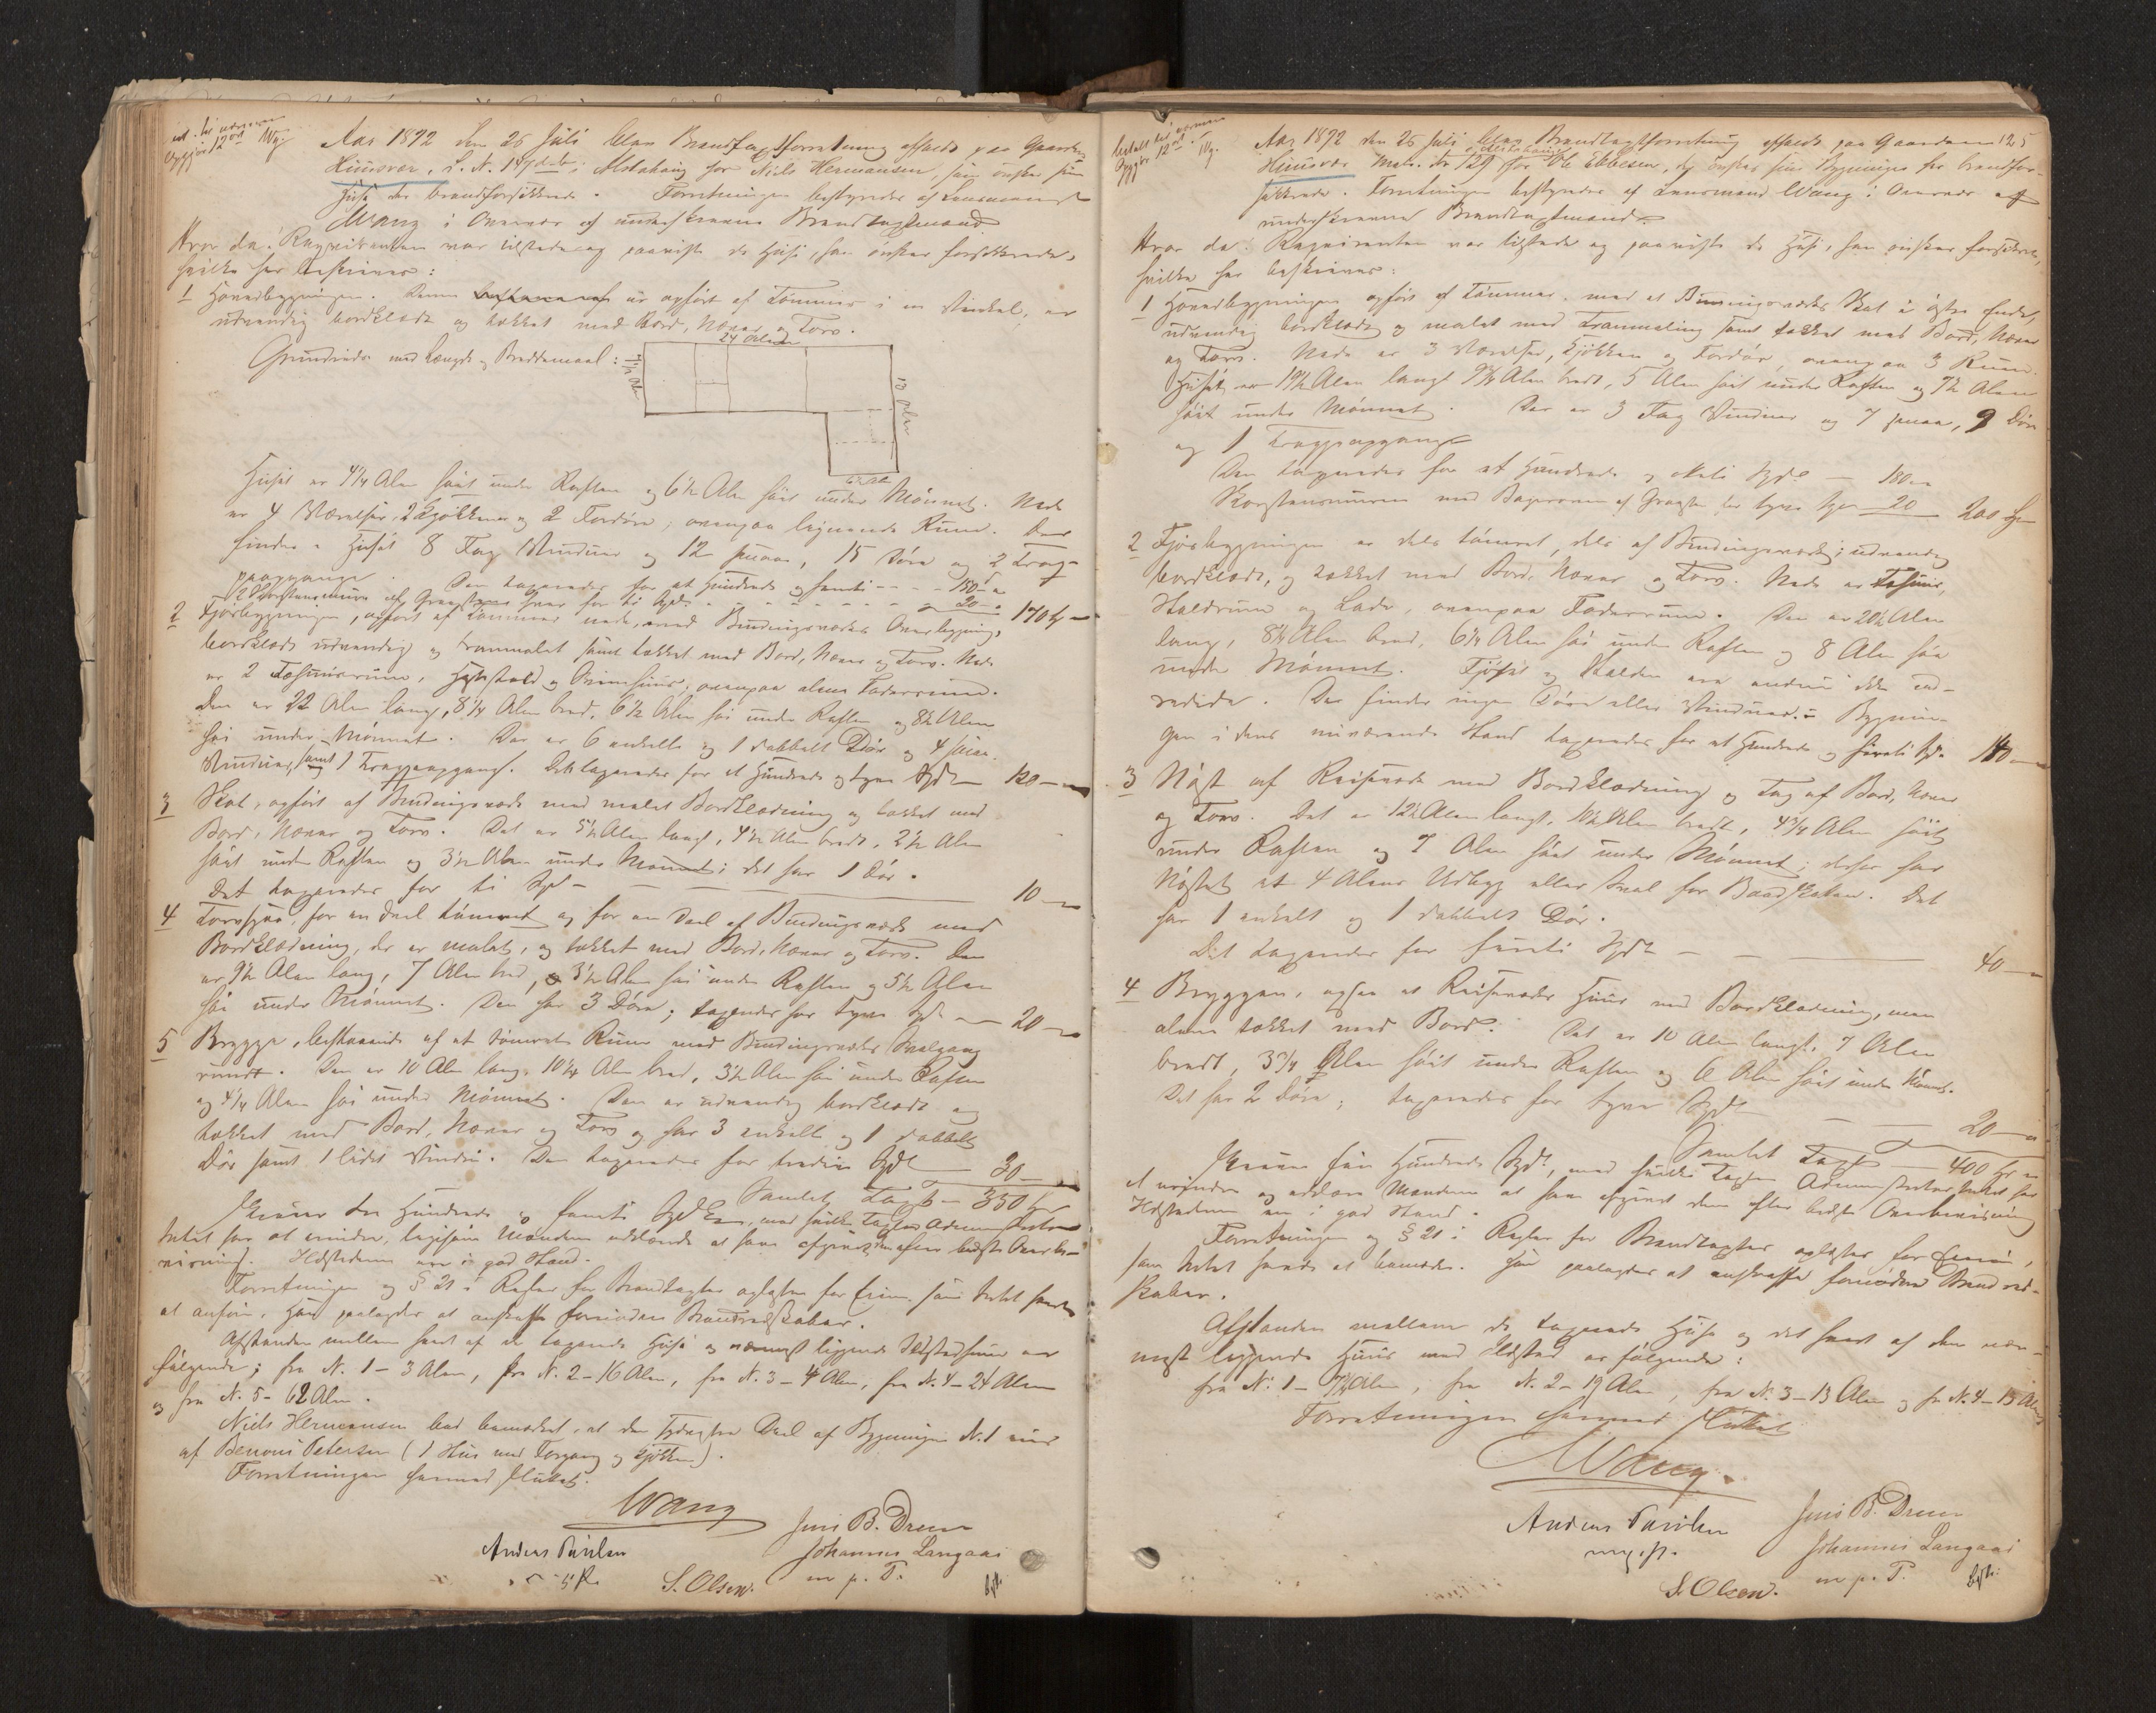 Aar 1872 den 26 Juli blev Brandtaxtforretning afholdt paa Gaarden
Huusvær, L. N. 129 i Alstahaug for Niels Hermansen, som ønsker sine
Huse der brandforsikkrede. Forretningen bestyredes af Lensmand
Wang i Overvær af underskrevne Brandtaxtmænd
Hvor da: Requirenten var tilstede og paaviste de Huse, han ønsker forsikkrede,
hvilke her beskrives:
1 Hovedbygningen. Denne er opført af Tømmer i en Vinkel, er
udvendig bordklædt og tækket med Bord, Næver og Torv.
Grundrids med Længde og Breddemaal:
24 Alen
12 Alen
6½ Al
Huset er 4¼ Alen høit under Raften og 6½ Alen høit under Mønnet. Nede
er 4 Værelser, 2 Kjøkkener og 2 Fordøre; ovenpaa lignende Rum. Der
findes i Huset 8 Fag Vinduer og 12 smaa, 15 Døre og 2 Trap-
peopgange. Den taxeredes for et Hundrede og femti - - - 150 -
2 Skorstensmure af Graasten hver for ti Spd - - - 20 - 170 Spd
2 Fjøsbygningen, opført af Tømmer nede, med Bindingsværks Overbygning,
bordklædt udvendig og tranmalet samt tækket med Bord, Næver og Torv. Nede
er 2 Fæhuusrum, og ovenpaa alene Foderrum.
Den er 22 Alen lang, 8¼ Alen bred, 6½ Alen høi under Raften og 8½ Alen
høi under Mønnet. Der er 6 enkelte og 1 dobbelt Dør og 4 smaa
Vinduer, samt 1 Trappeopgang. Den taxeredes for et Hundrede og tyve Spd 120 -
3 Skot, opført af Bindingsværk med malet Bordklædning og tækket med
Bord, Næver og Torv. Det er 5½ Alen langt, 4½ Alen bredt, 2½ Alen
høit under Raften og 3½ Alen under Mønnet; det har 1 Dør.
Det taxeredes for ti Spd - 10 -
4 for en Deel tømret og for en Deel af Bindingsværk med
Bordklædning, der er malet, og tækket med Bord, Næver og Torv. Den
er 9½ Alen lang, 7 Alen bred, 3½ Alen høi under Raften og 5½ Alen
høi under Mønnet. Den har 3 Døre; taxeredes for tyve Spd - 20 -
5 Brygge, bestaaende af et tømret Rum med Bindingsværks Svalgang
rundt. Den er 10 Alen lang, 10¼ Alen bred, 3½ Alen høi under Raften
og Alen høi under Mønnet. Den er udvendig bordklædt og
tækket med Bord, Næver og Torv og har 3 enkelte og 1 dobbelt
Dør samt 1 lidet Vindue. Den taxeredes for tredive Spd - 30 -
Samlet Taxt - 350 Spd
Skriver tre Hundrede og femti Spd, med hvilken Taxt Administrator
Intet har at erindre, ligesom Mændene erklærede at have afgivet den efter bedste Overbe-
viisning. Ildstederne ere i god Stand.
Forretningen og § 21 i Regler for Brandtaxter oplæstes for Eieren, som Intet havde
at anføre. Han paalagdes at anskaffe fornødne Brandredskaber.
Afstanden mellem hvert af de taxerede Huse og nærmest liggende Ildstedshuus er
følgende; fra N. 1 - 3 Alen, fra N. 2 - 16 Alen, fra N. 3 - 4 Alen, fra N. 4 - 24 Alen
og fra N. 5 - 62 Alen.
Niels Hermansen bad bemærket, at den sydvestre Deel af Bygningen N. 1 eies
af Benoni Petersen (1 Stue med Forgang og Kjøkken).
Forretningen hermed sluttet.
Wang
Jens B. Dreer
Johannes Langaas
m p. P.
S. Olsen.
125
Aar 1872 den 26 Juli blev Brandtaxtforretning afholdt paa Gaarden
Huusvær Matr. No 129 i Alstahaug for Ole Ebbesen, der ønsker sine Bygninger der brandfor-
sikkrede. Forretningen bestyredes af Lensmand Wang i Overvær af
underskrevne Brandtaxtmænd.
Hvor da: Requirenten var tilstede og paaviste de Huse, han ønsker forsikkret,
hvilke her beskrives:
1 Hovedbygningen opført af Tømmer, med et Bindingsværks Skot i østre Ende,
udvendig bordklædt og malet med Tranmaling samt tækket med Bord, Næver
og Torv. Nede er 3 Værelser, Kjøkken og Fordør, ovenpaa 3 Rum.
Huset er 19½ Alen langt 9¼ Alen bredt, 5 Alen høit under Raften og 7½ Alen
høit under Mønnet. Der er 3 Fag Vinduer og 7 smaa, 9 Døre
og 1 Trappeopgang
Den taxeredes for et Hundrede og otteti Spd - 180 -
Skorstensmuren med Bagerovn af Graasten for tyve Spd 20 - 200 Spd
2 Fjøsbygningen er dels tømret, dels af Bindingsværk; udvendig
bordklædt, og tækket med Bord, Næver og Torv. Nede er Fæhuus,
Staldrum og Lade, ovenpaa Foderrum. Den er 20½ Alen
lang, 8¼ Alen bred, 6¼ Alen høi under Raften og 8 Alen høi
under Mønnet. Fjøset og Stalden ere endnu ikke ind-
redede. Der findes ingen Døre eller Vinduer. - Bygnin-
gen i dens nuværende Stand taxeredes for et Hundrede og firti Spd 140 -
3 Nøst af Reisværk med Bordklædning og Tag af Bord, Næver
og Torv. Det er 12½ Alen langt, 10½ Alen bredt, 4¾ Alen høit
under Raften og 7 Alen høit under Mønnet; desuden har
Nøstet et 4 Alens Udbyg eller Sval for Baadskaten. Det
har 1 enkelt og 1 dobbelt Dør.
Det taxeredes for firti Spd - 40 -
4 Bryggen, ogsaa et Reisværks Huus med Bordklædning, men
alene tækket med Bord. Det er 10 Alen langt, 7 Alen
bredt, 3¾ Alen høit under Raften og 6 Alen høit under Mønnet.
Det har 2 Døre; taxeredes for tyve Spd - 20 -
Samlet Taxt - 400 Spd
Skriver fire Hundrede Spd, med hvilken Taxt Administrator Intet har
at erindre og erklærede Mændene at have afgivet den efter bedste Overbeviisning
Ildstederne ere i god Stand.
Forretningen og § 21 i Regler for Brandtaxter oplæstes for Eieren,
som Intet havde at bemærke. Han paalagdes at anskaffe fornødne Brandred-
skaber.
Afstanden mellem de taxerede Huse og det hvert af dem nær-
mest liggende Huus med Ildsted er følgende:
fra N. 1 - Alen, fra N. 2 - 19 Alen, fra N. 3 - 13 Alen og fra N. 4 - 13 Alen
Forretningen hermed sluttet
Wang.
Jens B. Dreer
Johannes Langaas
m p. P.
S. Olsen.